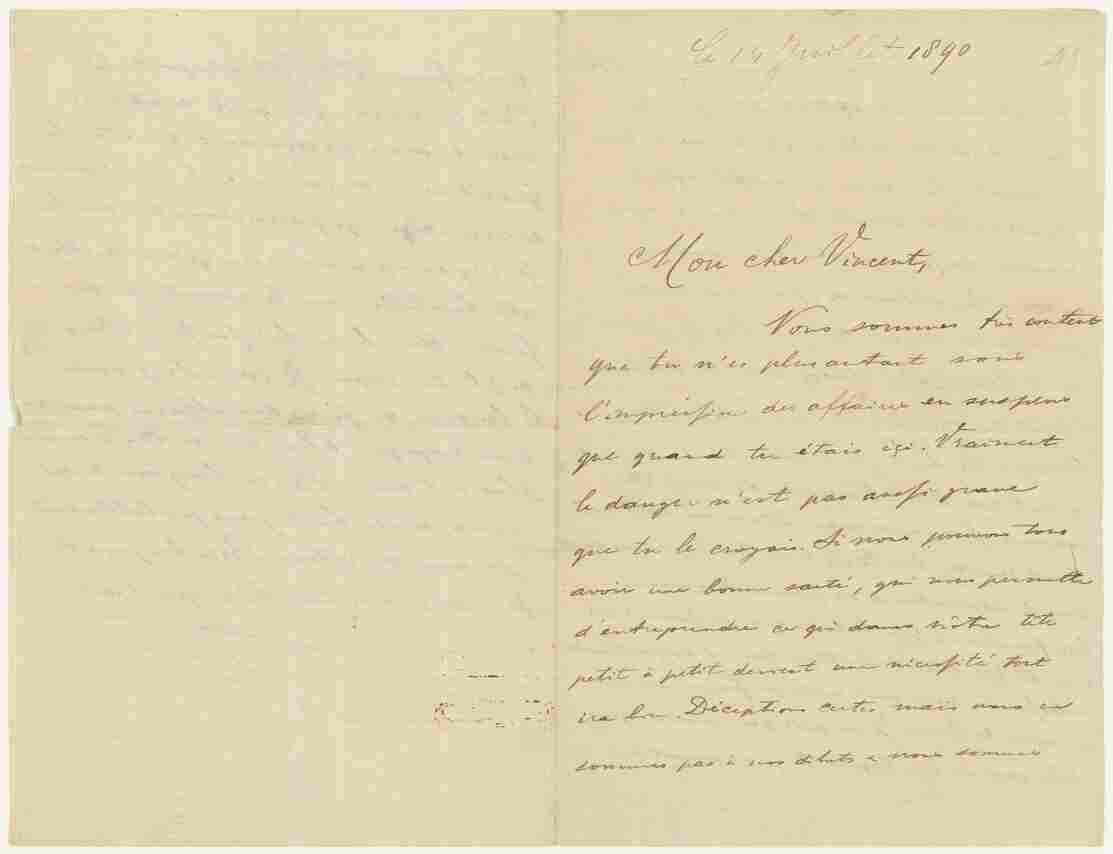 Le 14 Juillet 1890
Mon cher Vincent,
Nous sommes très content
que tu n'es plus autant sous
l'impression des affaires en suspens
que quand tu étais içi. Vraiment
le danger n'est pas aussi grave
que tu le croyais. Si nous pouvons tous
avoir une bonne santé, qui nous permette
d'entreprendre ce qui dans nôtre tête
petit à petit devient une nécessité tout
ira bien. Déceptions certes mais nous ne
sommes pas à nos débuts & nous sommes